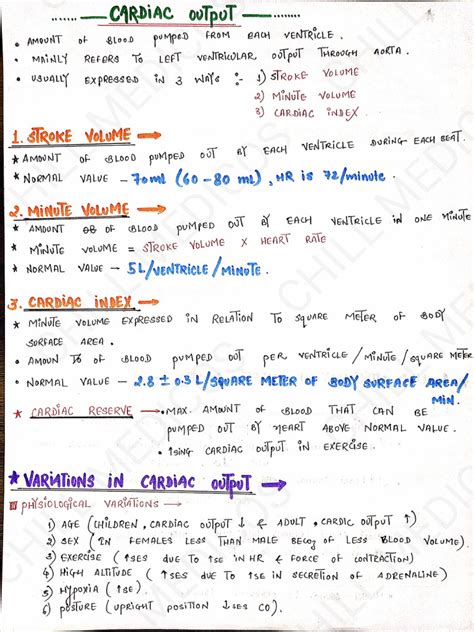 CARDIAC OUTPUT
• AMOUNT OF BLOOD PUMPED FROM EACH VENTRICLE.
• MAINLY REFERS TO LEFT VENTRICULAR OUTPUT THROUGH AORTA.
• USUALLY EXPRESSED IN 3 WAYS :- 1) STROKE VOLUME
2) MINUTE VOLUME
3) CARDIAC INDEX.
1. STROKE VOLUME →
* AMOUNT OF BLOOD PUMPED OUT BY EACH VENTRICLE DURING EACH BEAT.
* NORMAL VALUE – 70 ml (60 – 80 ml), HR is 72/minute.
2. MINUTE VOLUME →
* AMOUNT OF BLOOD PUMPED OUT BY EACH VENTRICLE in ONE MINUTE
* MINUTE VOLUME = STROKE VOLUME X HEART RATE
* NORMAL VALUE – 5 L/VENTRICLE/MINUTE.
3. CARDIAC INDEX →
* MINUTE VOLUME EXPRESSED IN RELATION TO SQUARE METER OF BODY
SURFACE AREA.
• AMOUN TO OF BLOOD PUMPED OUT PER VENTRICLE/MINUTE/SQUARE METER
• NORMAL VALUE – 2.8 ± 0.3 L/SQUARE METER OF BODY SURFACE AREA/
MIN.
* CARDIAC RESERVE → • MAX. AMOUNT OF BLOOD THAT CAN BE
PUMPED OUT BY HEART ABOVE NORMAL VALUE.
• ↑SING CARDIAC OUTPUT IN EXERCISE.
* VARIATIONS IN CARDIAC OUTPUT →
PHYSIOLOGICAL VARIATIONS –
1) AGE (CHILDREN, CARDIAC OUTPUT ↓ & ADULT, CARDIC OUTPUT ↑)
2) SEX (IN FEMALES LESS THAN MALE BECOZ OF LESS BLOOD VOLUME).
3) EXERCISE (↑SES DUE TO ↑SE IN HR & FORCE OF CONTRACTION)
4) HIGH ALTITUDE (↑SES DUE TO ↑SE IN SECRETION OF ADRENALINE)
5) HYPOXIA (↑SE).
6) POSTURE (UPRIGHT POSITION ↓SES CO).
CHILL MEDICOS